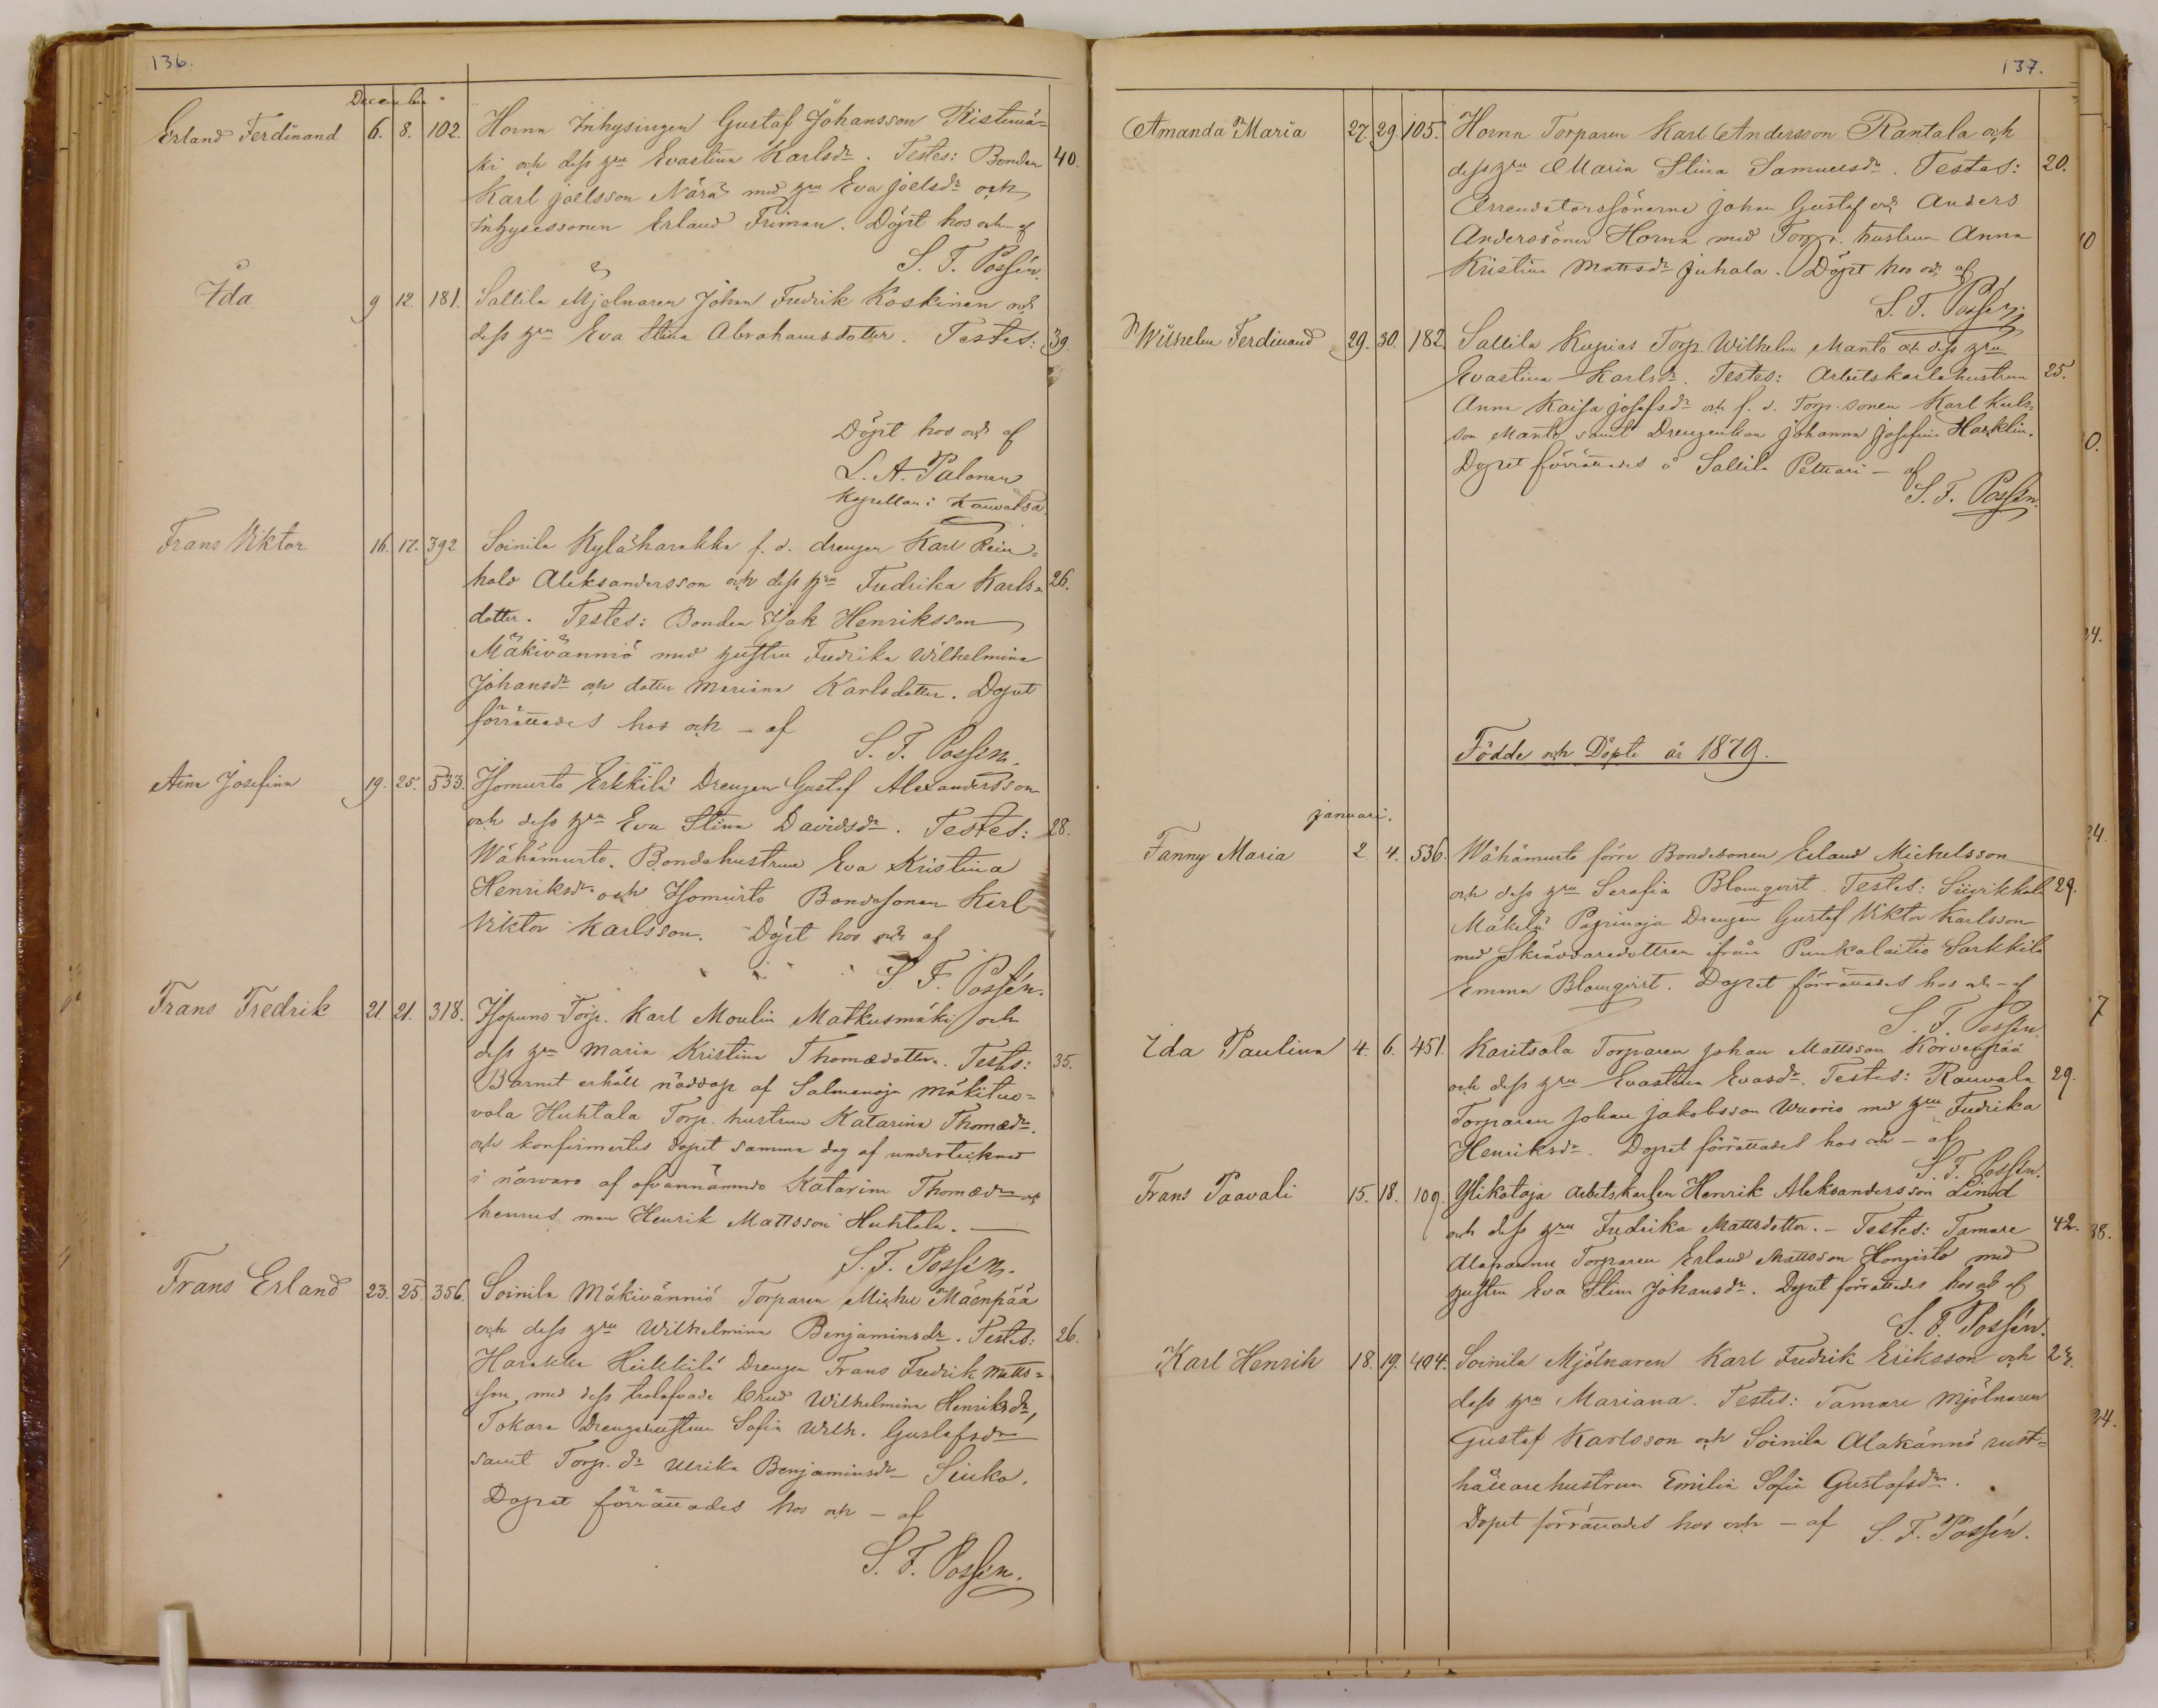 136.
December
Erland Ferdinand 6. 8. 102. Horna Inhysingen Gustaf Johansson Ristimä-
ki och dess hru Evastina Karlsdr. Testes: Bonden 40.
Karl Joelsson Närä med hru Eva Joelsdr och
Inhysessonen Erland Friman. Döpt hos och - af
S. F. Possén.
Ida 9 12. 181. Sallila Mjölnaren Johan Fredrik Koskinen och
dess hru Eva Stina Abrahamsdotter. Testes: 39.
Döpt hos och af
L. A. Palonen
Kapellan i Kauvatsa
Frans Viktor 16. 17. 392 Soinila Kyläharakka f. d. drengen Karl Rein-
hold Aleksandersson och dess hru Fredrika Karls- 26.
dotter. Testes: Bonden Isak Henriksson
Mäkivänniö med hustru Fredrika Wilhelmina
Johansdr och dotter Mariana Karlsdotter. Dopet
förrättades hos och - af
S. F. Possén.
Aina Josefina 19. 25. 533. Isomurto Erkkilä Drengen Gustaf Alexandersson
och dess hru Eva Stina Davidsdr. Testes: 28.
Wähämurto Bondehustrun Eva Kristina
Henriksdr och Isomurto Bondesonen Karl
Viktor Karlsson. Döpt hos och af
S. F. Possén.
Frans Fredrik 21. 21. 318. Isopuno Torp. Karl Moulin Matkusmäki och
dess hru Maria Kristina Thomædotter. Testes: 35.
Barnet erhöll nöddop af Salmenoja Mäkituo-
vola Huhtala Torp. hustrun Katarina Thomædr.
och konfirmertes dopet samma dag af undertecknad
i närvaro af ofvannämnde Katarina Thomædr och
hennes man Henrik Mattsson Huhtala.
S. F. Possén.
Frans Erland 23. 25. 356. Soinila Mäkivänniö Torparen Mickel Mäenpää
och dess hru Wilhelmina Benjaminsdr. Testes: 26.
Harakka Heikkilä Drengen Frans Fredrik Matts-
son, med dess trolofvade brud Wilhelmina Henriksdr,
Tokara Drengehustrun Sofia Wilh. Gustafsdr
samt Torp. dr Ulrika Benjaminsdr Siuko.
Dopet förrättades hos och - af
S. F. Possén.
137.
Amanda Maria 27. 29. 105. Horna Torparen Karl Andersson Rantala och
dess hru Maria Stina Samuelsdr. Testes: 20.
Arrendatorssönerne Johan Gustaf och Anders
Anderssöner Horna med Torp. hustrun Anna
Kristina Mattsdr Juhala. Döpt hos och af
S. F. Possén.
Wilhelm Ferdinand 29. 30. 182. Sallila Kupias Torp. Wilhelm Manto och dess hru
Evastina Karlsdr. Testes: Arbetskarlshustrun 25.
Anna Kaisa Josefsdr och f. d. Torp. sonen Karl Karls-
son Manto samt Drengenkan Johanna Josefina Harklin.
Dopet förrättades å Sallila Pelttari - af
S. F. Possén.
Födde och Döpte år 1879.
januari.
Fanny Maria 2 4. 536. Wähämurto förre Bondesonen Erland Michelsson
och dess hru Serafia Blomqvist. Testes: Siivikkala 29.
Mäkelä Drengen Gustaf Viktor Karlsson
med Skräddaredottren ifrån Punkalaitio Sarkkila
Emma Blomqvist. Dopet förrättades hos och - af
S. F. Possén
Ida Paulina 4. 6. 451. Karitsala Torparen Johan Mattsson Korvenpää
och dess hru Evastina Evasdr. Testes: Rauvola 29.
Torparen Johan Jakobsson Wuorio med hru Fredrika
Henriksdr. Dopet förrättades hos och - af
S. F. Possén.
Frans Paavali 15. 18. 109. Ylikataja Arbetskarlen Henrik Aleksandersson Lind
och dess hru Fredrika Mattsdotter. - Testes: Tamare 42.
Alapaunu Torparen Erland Mattsson Hongisto med
hustru Eva Stina Johansdr. Dopet förrättades hos och af
S. F. Possén.
Karl Henrik 18. 19. 404. Soinila Mjölnaren Karl Fredrik Eriksson och
dess hru Mariana. Testes: Tamare Mjölnaren
Gustaf Karlsson och Soinila Alakännö rust-
hållarehustrun Emilia Sofia Gustafsdr.
Dopet förrättades hos och - af S. F. Possén.